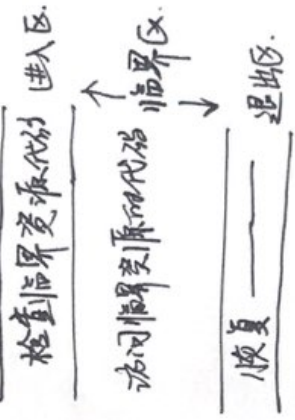 检查临界资源代码 进入区.
访问临界资源的代码 临界区.
恢复 —— 退出区.